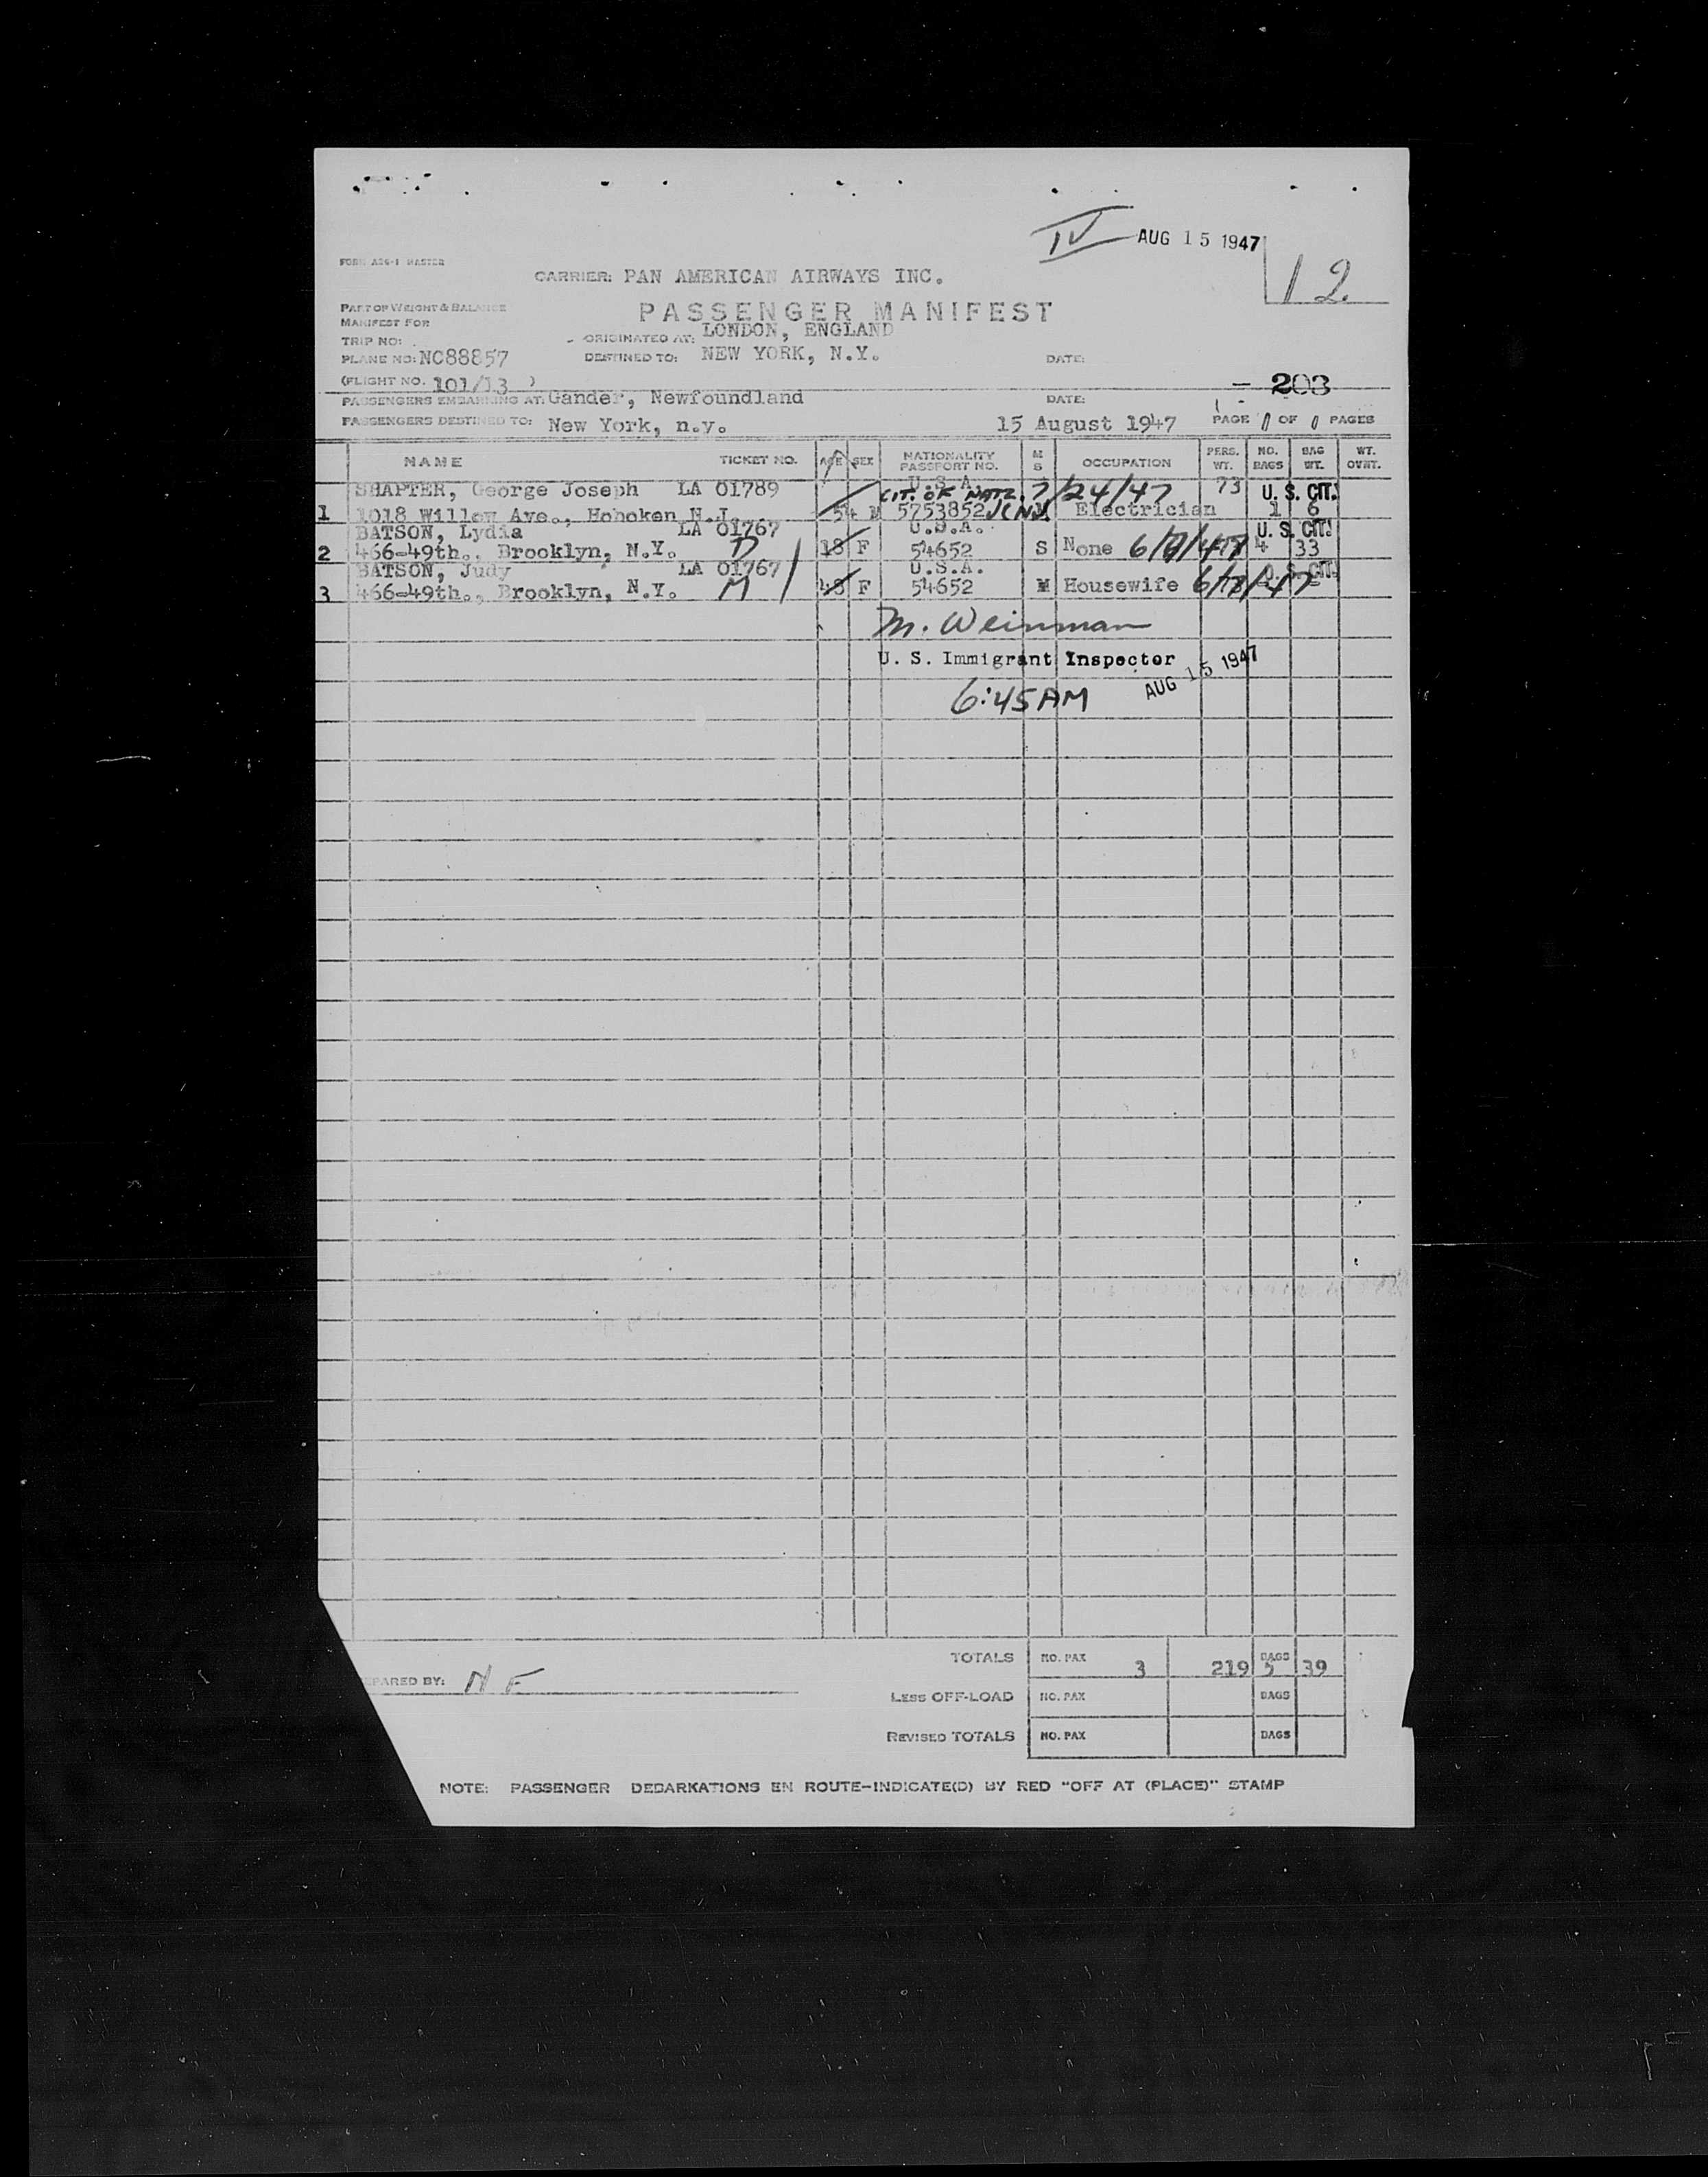 IV AUG 15 1947
12
FORM A26-1 MASTER
CARRIER: PAN AMERICAN AIRWAYS INC.
PART OF WEIGHT & BALANCE
MANIFEST FOR
PASSENGER MANIFEST
TRIP NO:
ORIGINATED AT: LONDON, ENGLAND
PLANE NO: NC88857
DESTINED TO: NEW YORK, N.Y.
DATE:
(FLIGHT NO. 101/13 )
- 203
PASSENGERS EMBARKING AT: Gander, Newfoundland
DATE:
PASSENGERS DESTINED TO: New York, n.y.
15 August 1947
PAGE OF PAGES
NAME TICKET NO. AGE SEX NATIONALITY PASSPORT NO. M S OCCUPATION PERS. WT. NO. BAGS BAG WT. WT. OVHT.
SHAPTER, George Joseph LA 01789 U.S.A. 73 U. S. CIT.
CIT. OF NATZ. 7/24/47
1 1018 Willow Ave., Hoboken N.J. 54 M 5753852 Electrician 1 6
BATSON, Lydia LA 01767 U.S.A. U. S. CIT.
2 466-49th., Brooklyn, N.Y. D 18 F 54652 S None 4 33
BATSON, Judy LA 01767 U.S.A. U. S. CIT.
3 466-49th., Brooklyn, N.Y. M 48 F 54652 M Housewife
M. Weinman
U. S. Immigrant Inspector
AUG 15 1947
6:45 AM
TOTALS NO. PAX 3 219 BAGS 5 39
PARED BY: N F
LESS OFF-LOAD NO. PAX BAGS
REVISED TOTALS NO. PAX BAGS
NOTE: PASSENGER DEBARKATIONS EN ROUTE-INDICATE(D) BY RED "OFF AT (PLACE)" STAMP